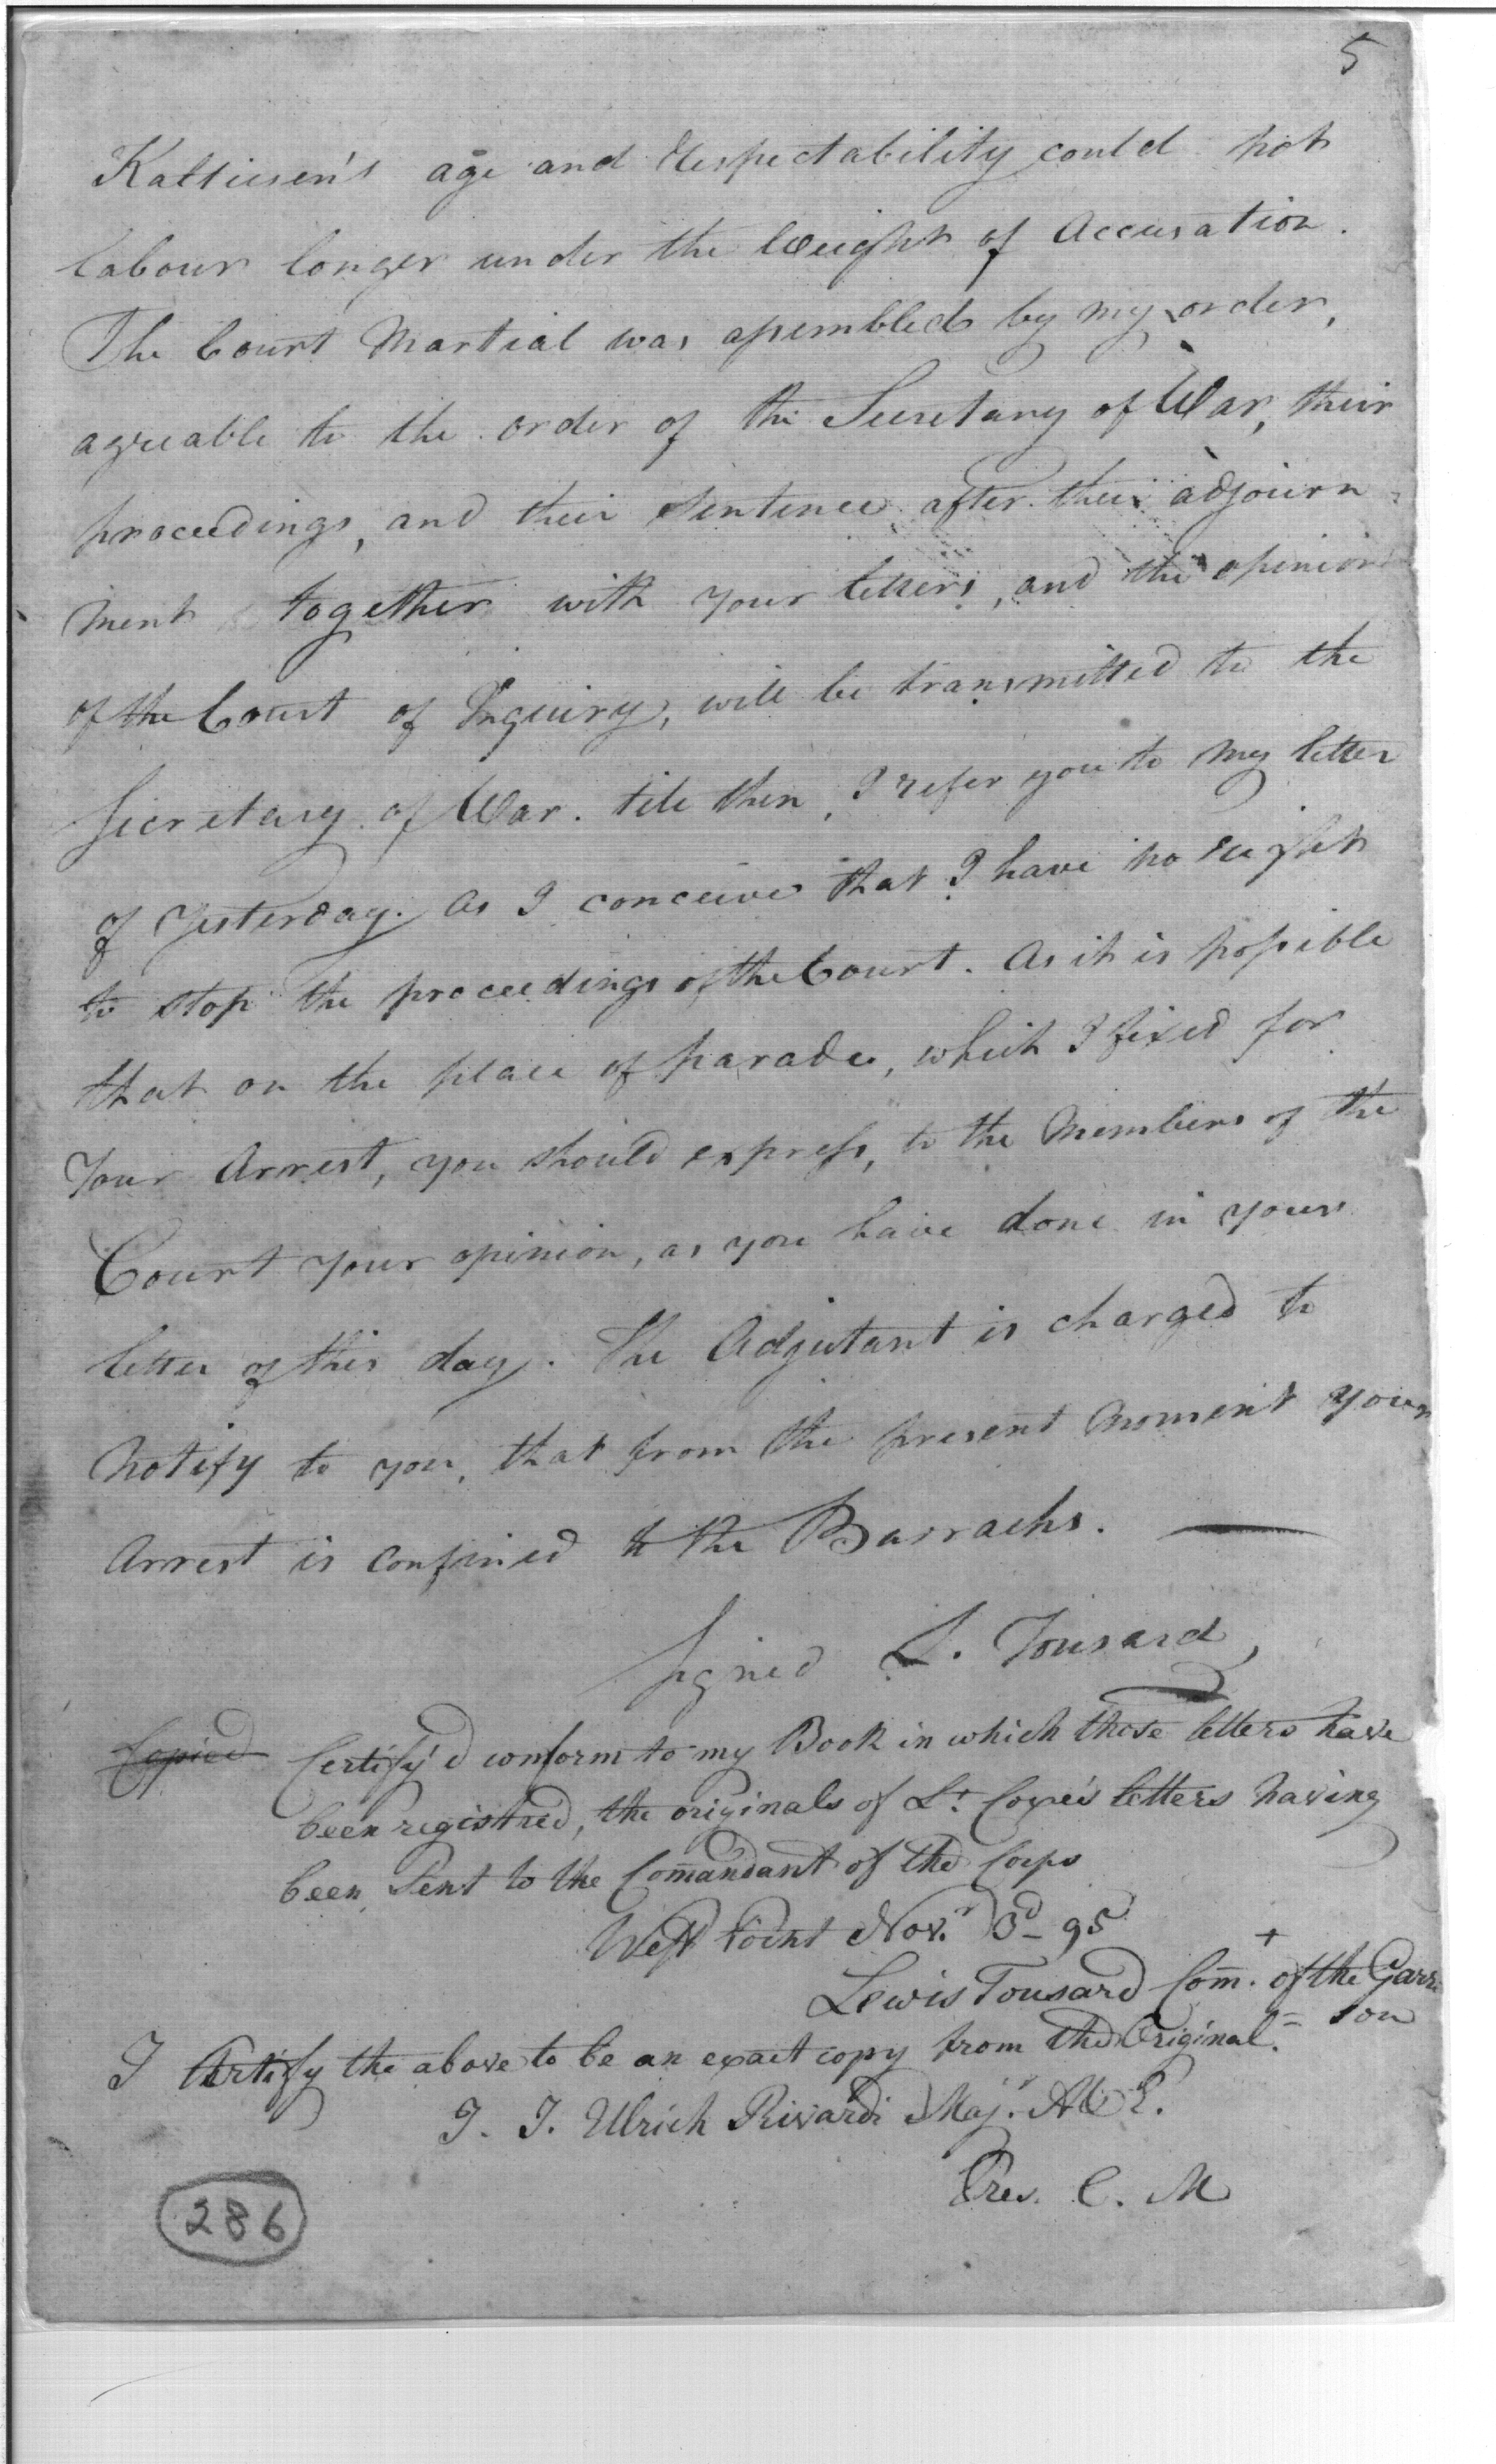 5
Kalteisen's age and respectability could not
labour longer under the Weight of Accusation.
The Court Martial was assembled by my order,
agreable to the order of the Secretary of War, their
proceedings, and their sentence after their adjourn-
ment together with your letters, and the opinion
of the Court of Inquiry, will be transmitted to the
Secretary of War. till then, I refer you to my letter
of Yesterday. As I conceive that I have no right
to stop the proceedings of the Court. As it is possible
that on the place of parade, which I fixed for
Your Arrest, you should express, to the Members of the
Court your opinion, as you have done in your
letter of this day. The Adjutant is charged to
Notify to you, that from the present moment your
Arrest is confined to the Barracks.
Signed L. Tousard,
Copied Certify'd conform to my Book in which those letters have
been registred, the originals of Lt. Coxe's letters having
been sent to the Comandant of the Corps
West Point Nov.r 3d - 95
+
Lewis Tousard Com. of the Garri
= son
I Certify the above to be an exact copy from the Original.
J. J. Ulrich Rivardi Maj.r A & E.
Pres. C. M
286